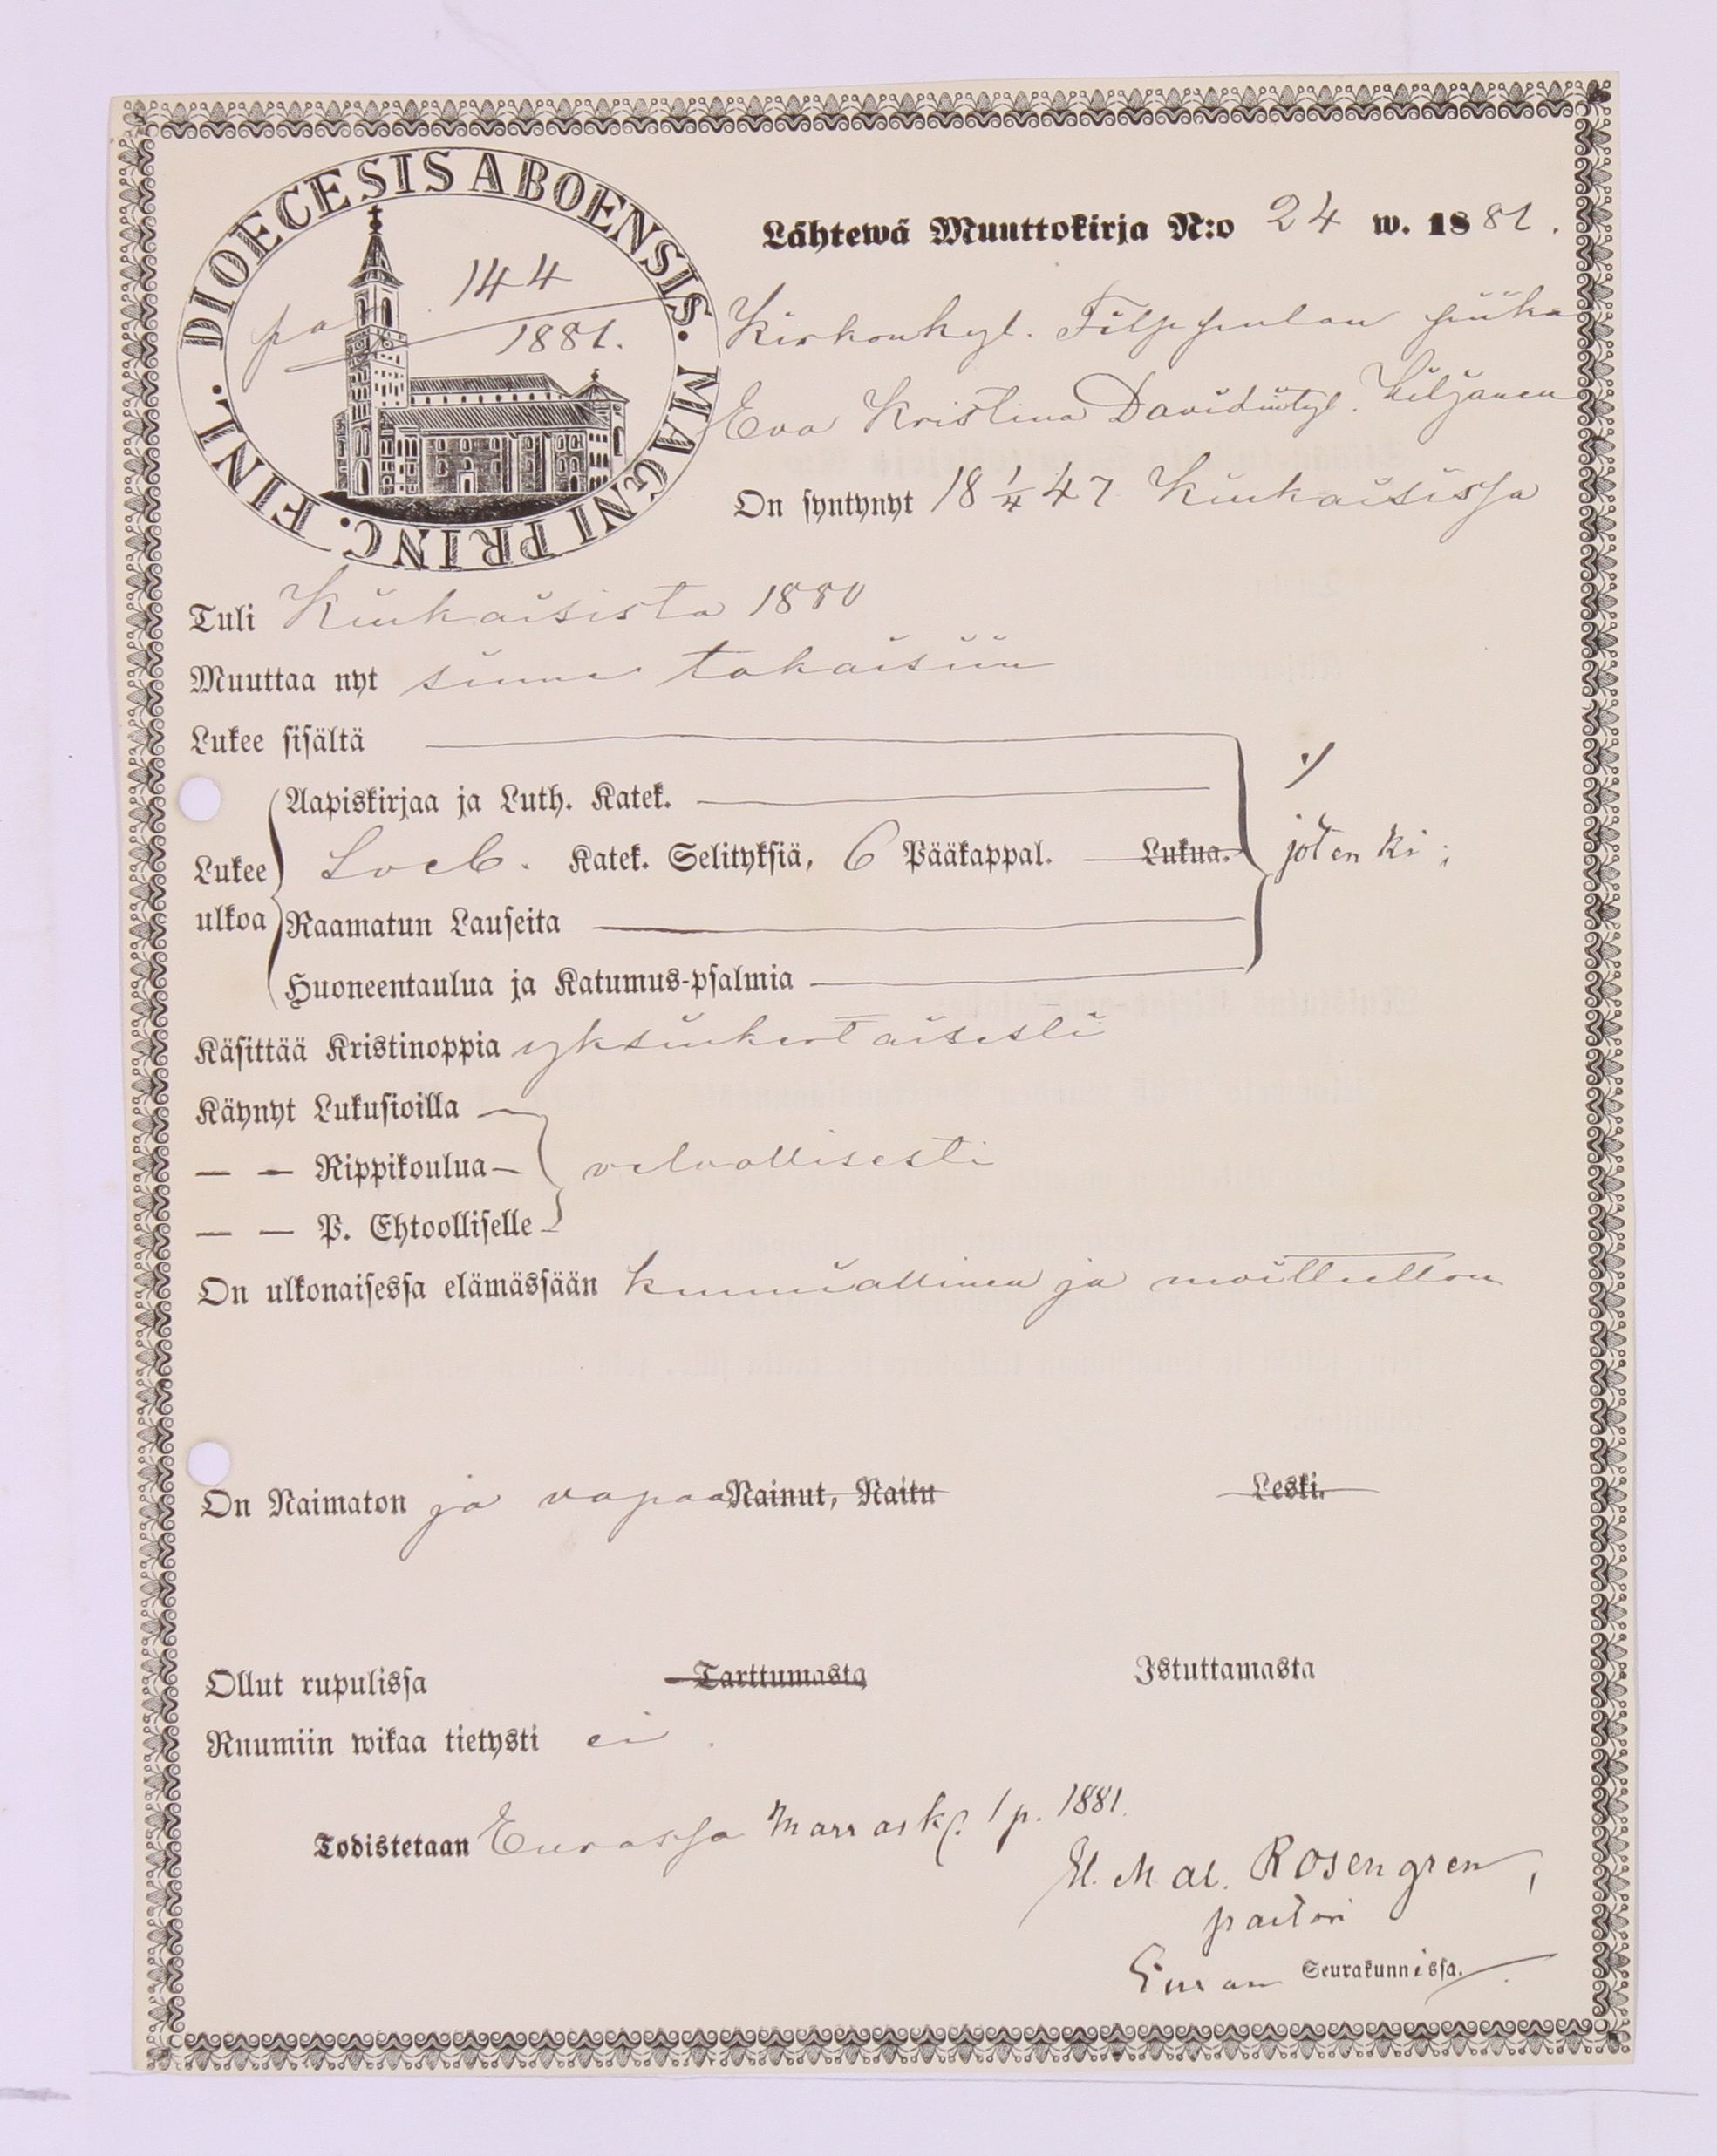 DIOECESIS ABOENSIS. MAGNI PRINC. FINL.
pag 144
1881.
Lähtewä Muuttokirja N:o 24 w. 1881.
Kirkonkyl. Filppulan piika
Eva Kristina Davidintyt. Kiljanen
On syntynyt 18 1/4 47 Kiukaisissa
Tuli Kiukaisista 1880
Muuttaa nyt sinne takaisiin
Lukee sisältä
Aapiskirjaa ja Luth. Katek.
Lukee ulkoa
Katek. Selityksiä, 6 Pääkappal. Lukua. jotenki;
Raamatun Lauseita
Huoneentaulua ja Katumus-psalmia
Käsittää Kristinoppia yksinkertaisesti
Käynyt Lukusioilla
— — Rippikoulua velvollisesti
— — P. Ehtoolliselle
On ulkonaisessa elämässään kunniallinen ja moitteeton
On Naimaton ja vapaa Nainut, Naitu Leski.
Ollut rupulissa Tarttumasta Istuttamasta
Ruumiin wikaa tietysti ei.
Todistetaan Eurassa Marrask. 1 p. 1881.
Rosengren,
pastori
Euran Seurakunnissa.